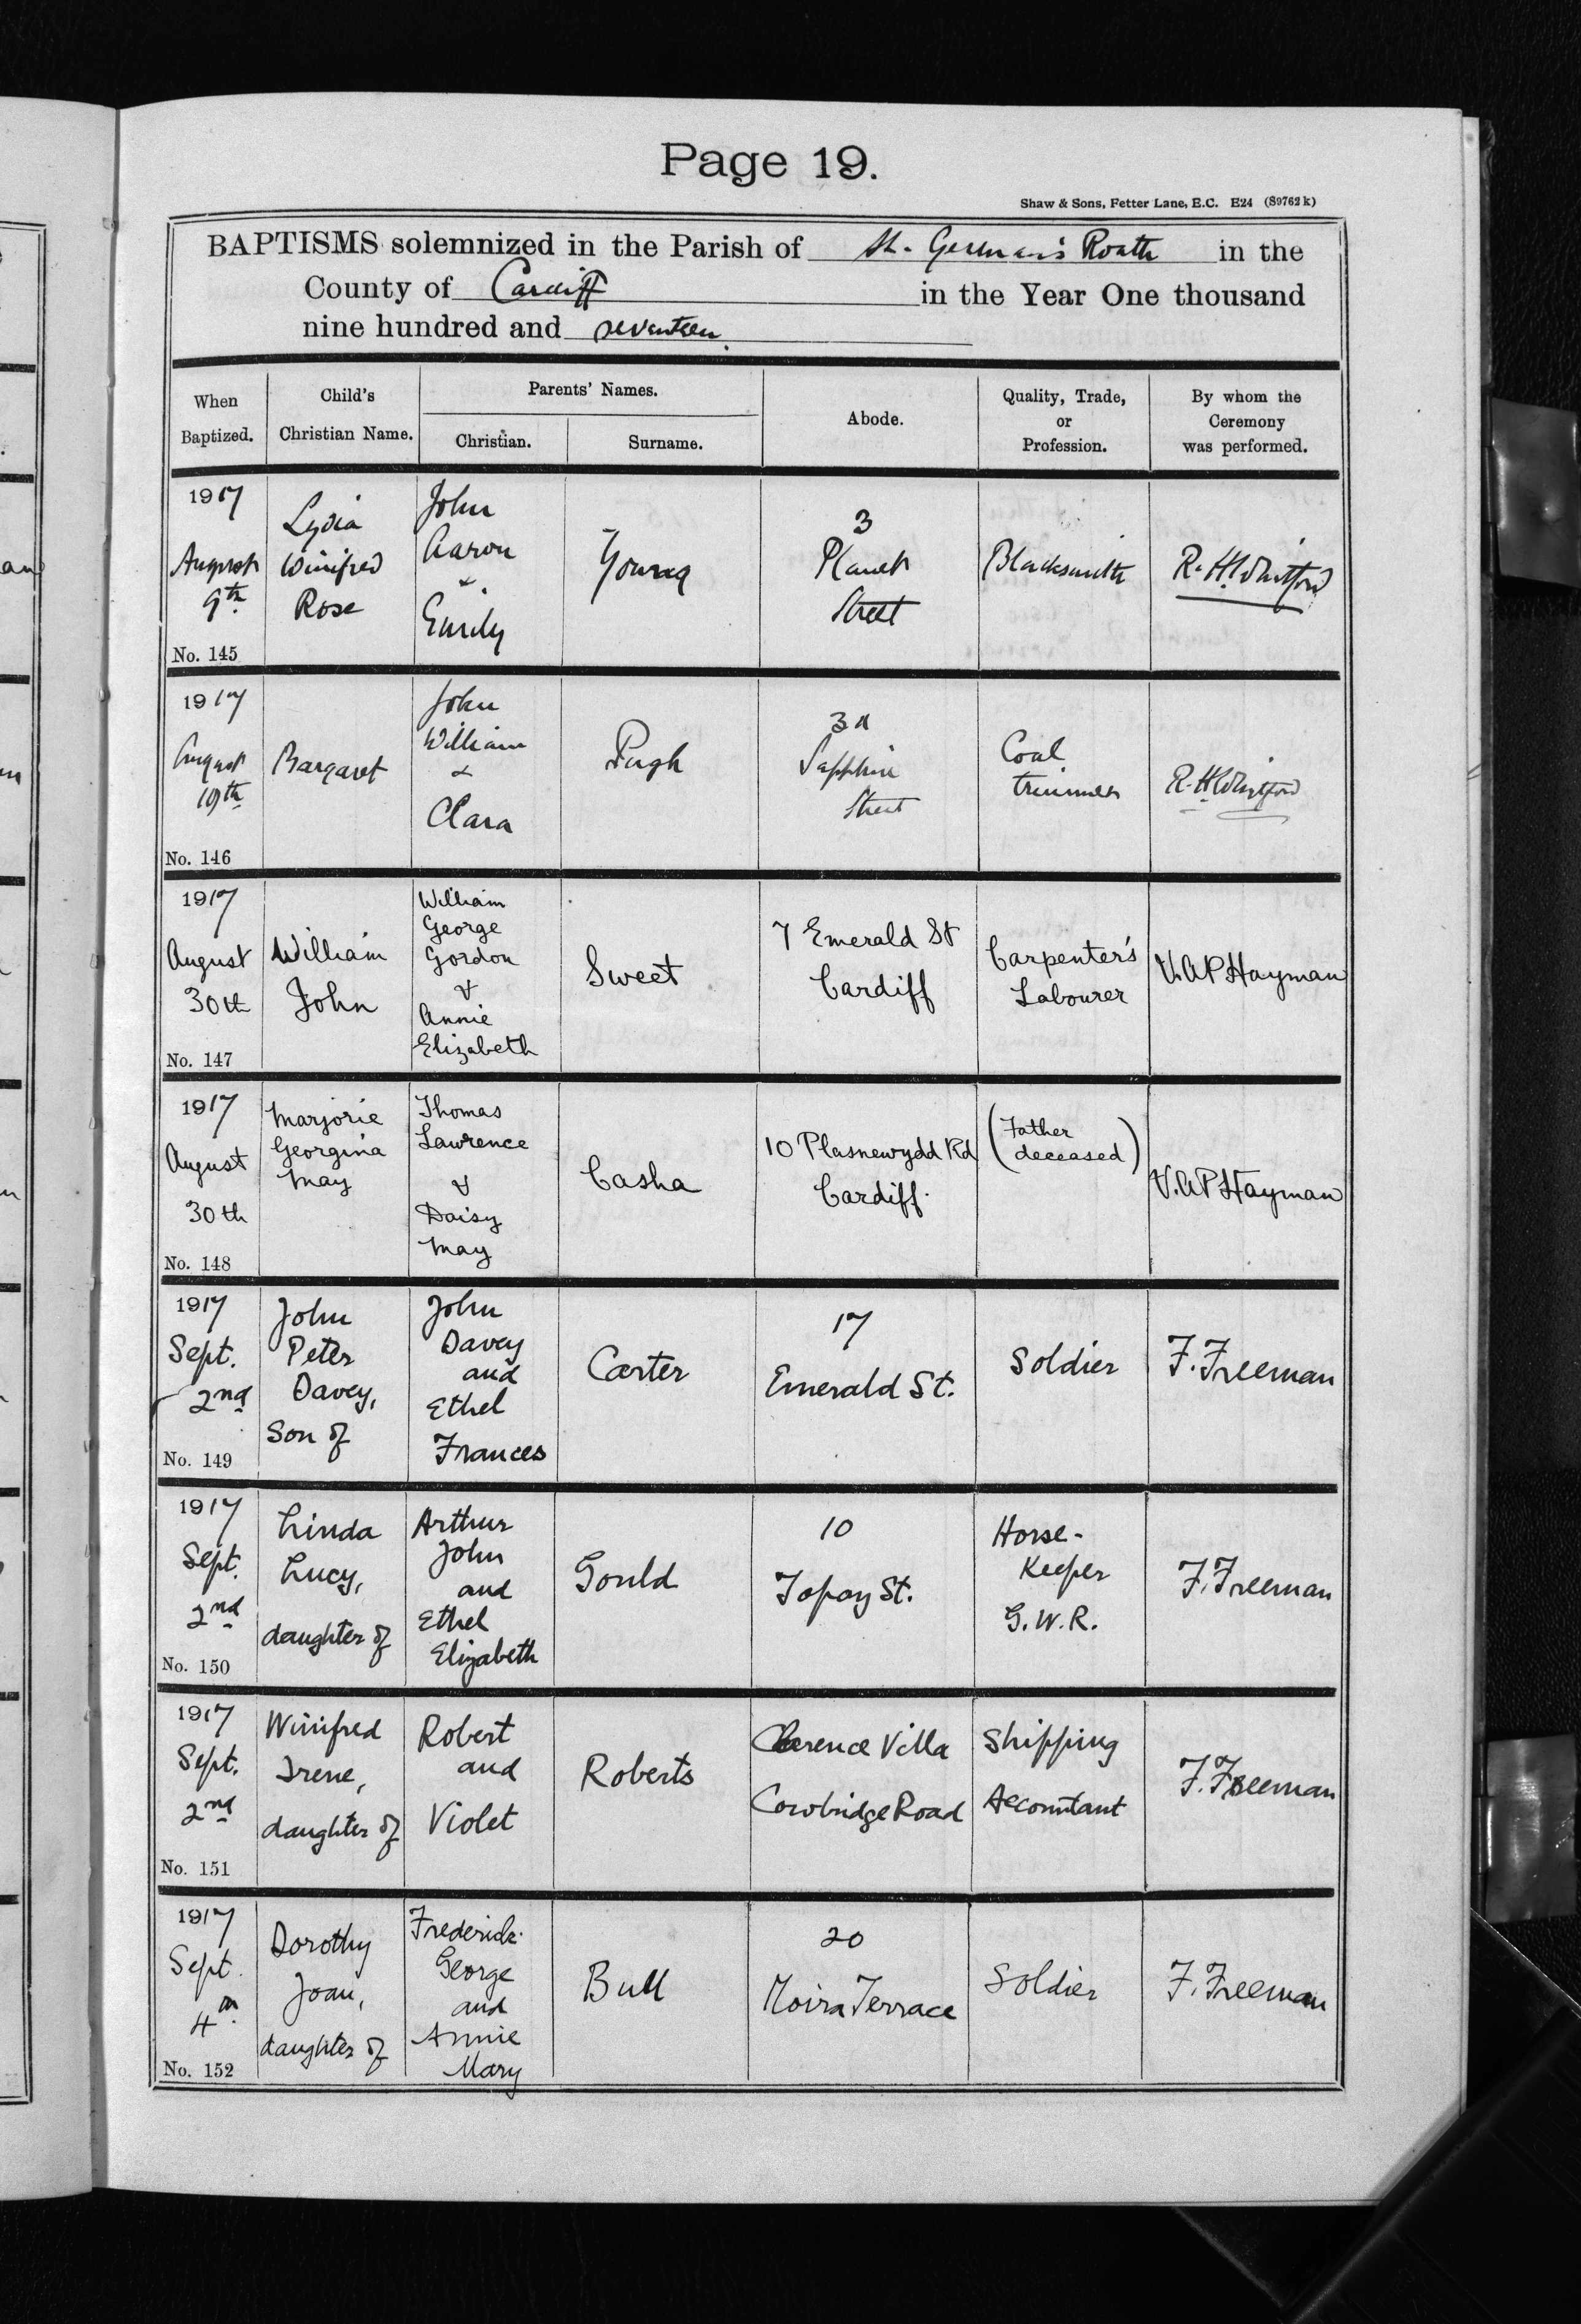 Page 19.
Shaw & Sons, Fetter Lane, E.C. E24 (89762k)
BAPTISMS solemnized in the Parish of St. German's Roath in the
County of Cardiff in the Year One thousand
nine hundred and seventeen.
When
Baptized.
Child's
Christian Name.
Parents' Names.
Christian.
Surname.
Abode.
Quality, Trade,
or
Profession.
By whom the
Ceremony
was performed.
1917
August
9th
No. 145
Lydia
Winifred
Rose
John
Aaron
&
Emily
Young
3
Planet
Street
Blacksmith
R. H. Whitford
1917
August
19th
No. 146
Margaret
John
William
&
Clara
Pugh
Sapphire
Street
Coal
trimmer
R. H. Whitford
1917
August
30th
No. 147
William
John
William
George
Gordon
&
Annie
Elizabeth
Sweet
7 Emerald St
Cardiff
Carpenter's
Labourer
V.A.P Hayman
1917
August
30th
No. 148
Marjorie
Georgina
May
Thomas
Lawrence
&
Daisy
May
Casha
10 Plasnewydd Rd
Cardiff.
(Father
deceased)
V.A.P Hayman
1917
Sept.
2nd
No. 149
John
Peter
Davey,
Son of
John
Davey
and
Ethel
Frances
Carter
17
Emerald St.
Soldier
F. Freeman
1917
Sept.
2nd
No. 150
Linda
Lucy,
daughter of
Arthur
John
and
Ethel
Elizabeth
Gould
10
Topaz St.
Horse-
Keeper
G.W.R.
F. Freeman
1917
Sept.
2nd
No. 151
Winifred
Irene,
daughter of
Robert
and
Violet
Roberts
Clarence Villa
Cowbridge Road
Shipping
Accountant
F. Freeman
1917
Sept.
4th
No. 152
Dorothy
Joan,
daughter of
Frederick
George
and
Annie
Mary
Bull
20
Moira Terrace
Soldier
F. Freeman